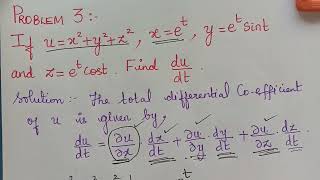 PROBLEM 3:-
If u=x²+y²+z², x=eᵗ, y=eᵗsint
and z=eᵗcost. Find du/dt.
Solution:- The total differential Co-efficient
of u is given by,
du/dt = ∂u/∂x . dx/dt + ∂u/∂y . dy/dt + ∂u/∂z . dz/dt